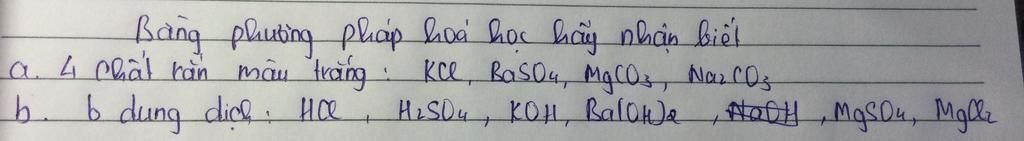 Bằng phương pháp hoá học hãy nhận biết
a. 4 chất rắn màu trắng : KCl, BaSO4, MgCO3, Na2CO3
b. 6 dung dịch : HCl, H2SO4, KOH, Ba(OH)2, NaOH, MgSO4, MgCl2